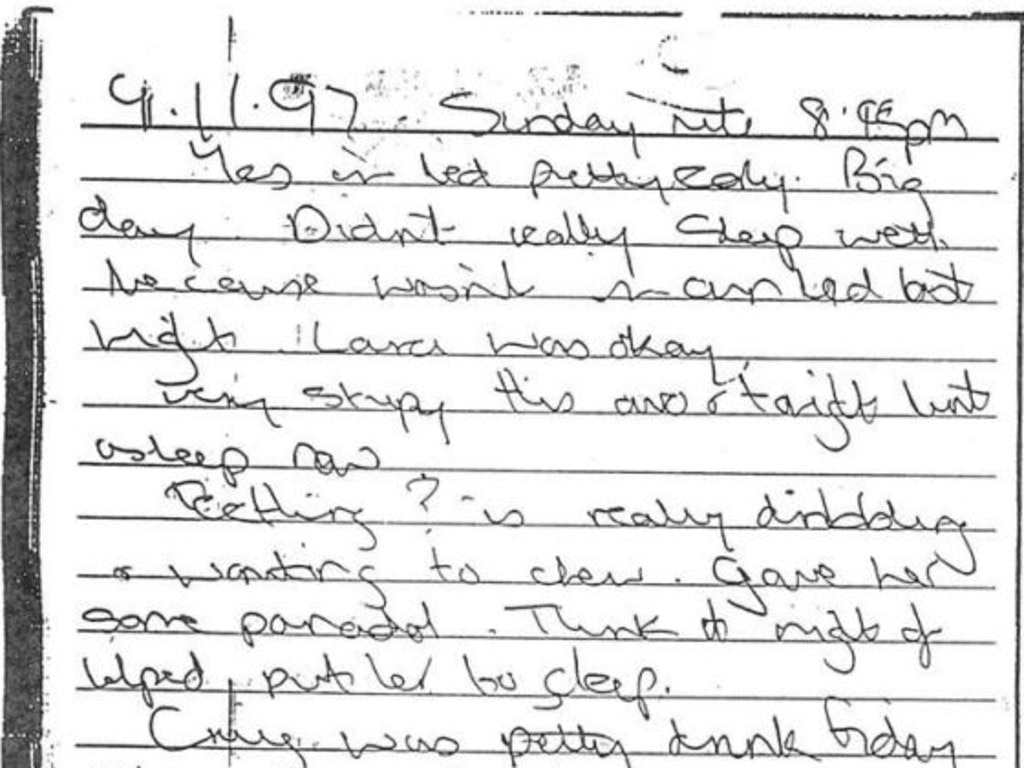 9.11.97 Sunday nite 8:45pm
Yes in bed pretty early. Big
day. Didn't really sleep well
because wasn't in own bed last
night. Laura was okay
very sleepy this arvo & tonight but
asleep now
Teething? is really dribbling
& wanting to chew. Gave her
some panadol. Think it might of
helped put her to sleep.
Craig was pretty drunk Friday